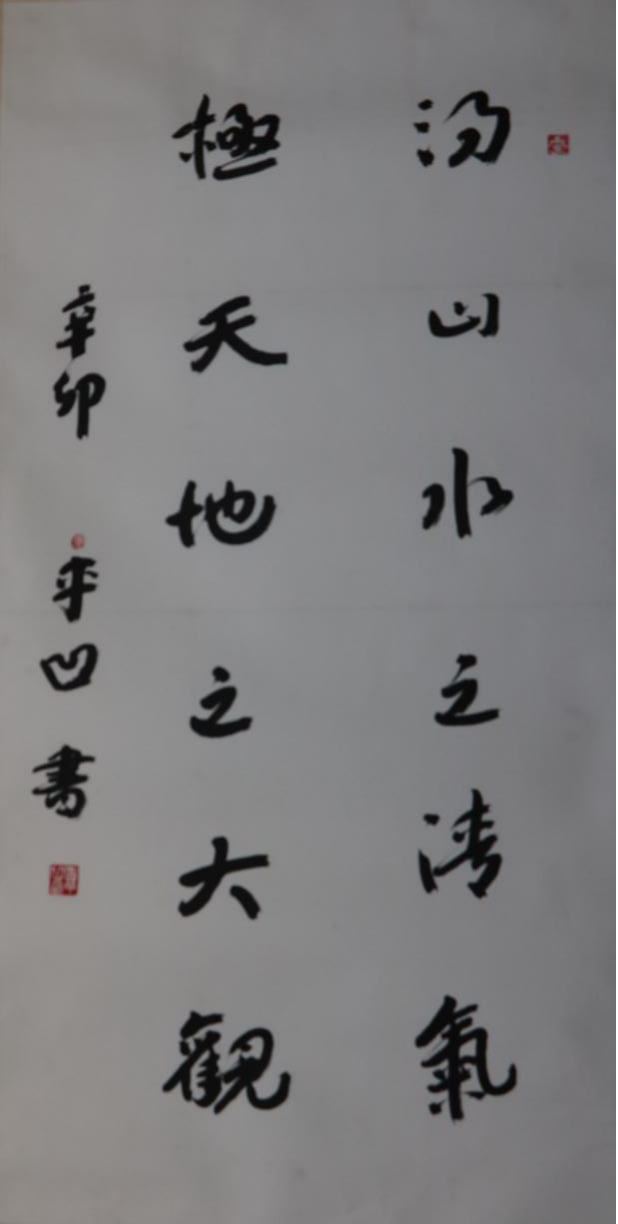 得山水之清氣
極天地之大觀
辛卯 平凹書